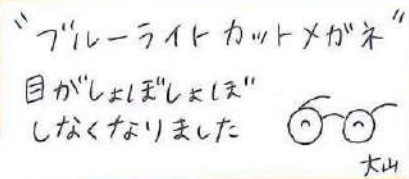 "ブルーライトカットメガネ"
目がしょぼしょぼ
しなくなりました
大山